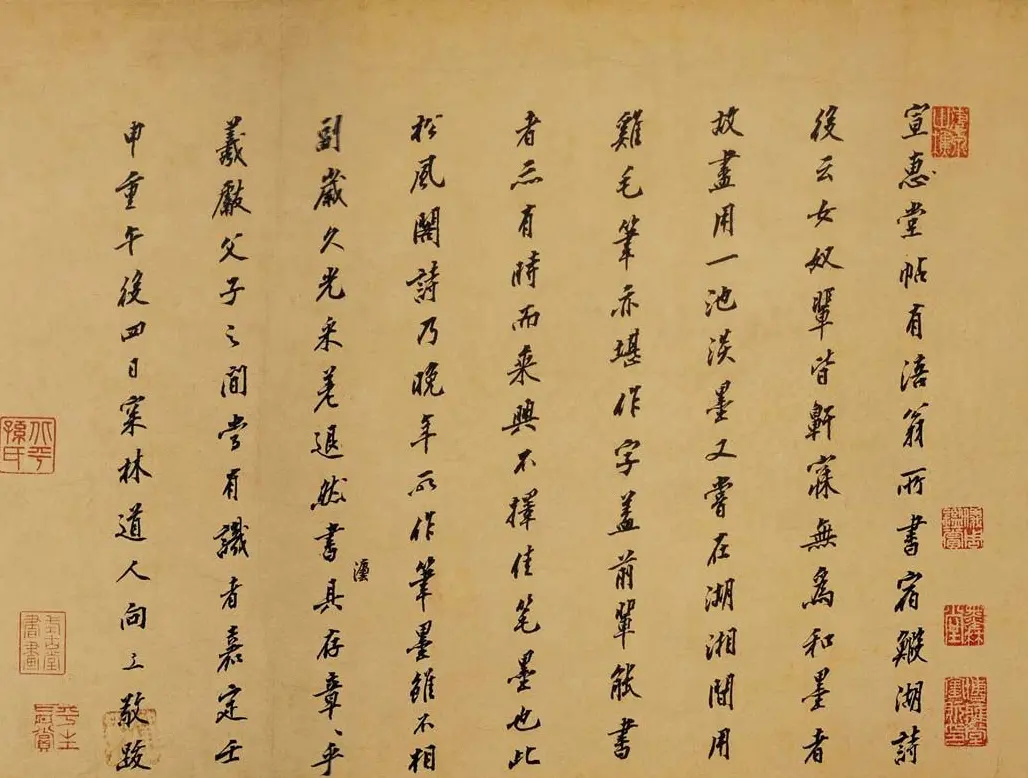 宣惠堂帖有涪翁所書宿鰕湖詩
後云女奴輩皆鼾寐無為和墨者
故盡用一池淡墨又嘗在湖湘間用
雞毛筆亦堪作字蓋前輩能書
者亦有時而乘興不擇佳笔墨也此
松風閣詩乃晚年所作筆墨雖不相
副歲久光采差退然書灋具存章、乎
羲獻父子之間當有識者嘉定壬
申重午後四日寀林道人向水敬跋
北平孫氏